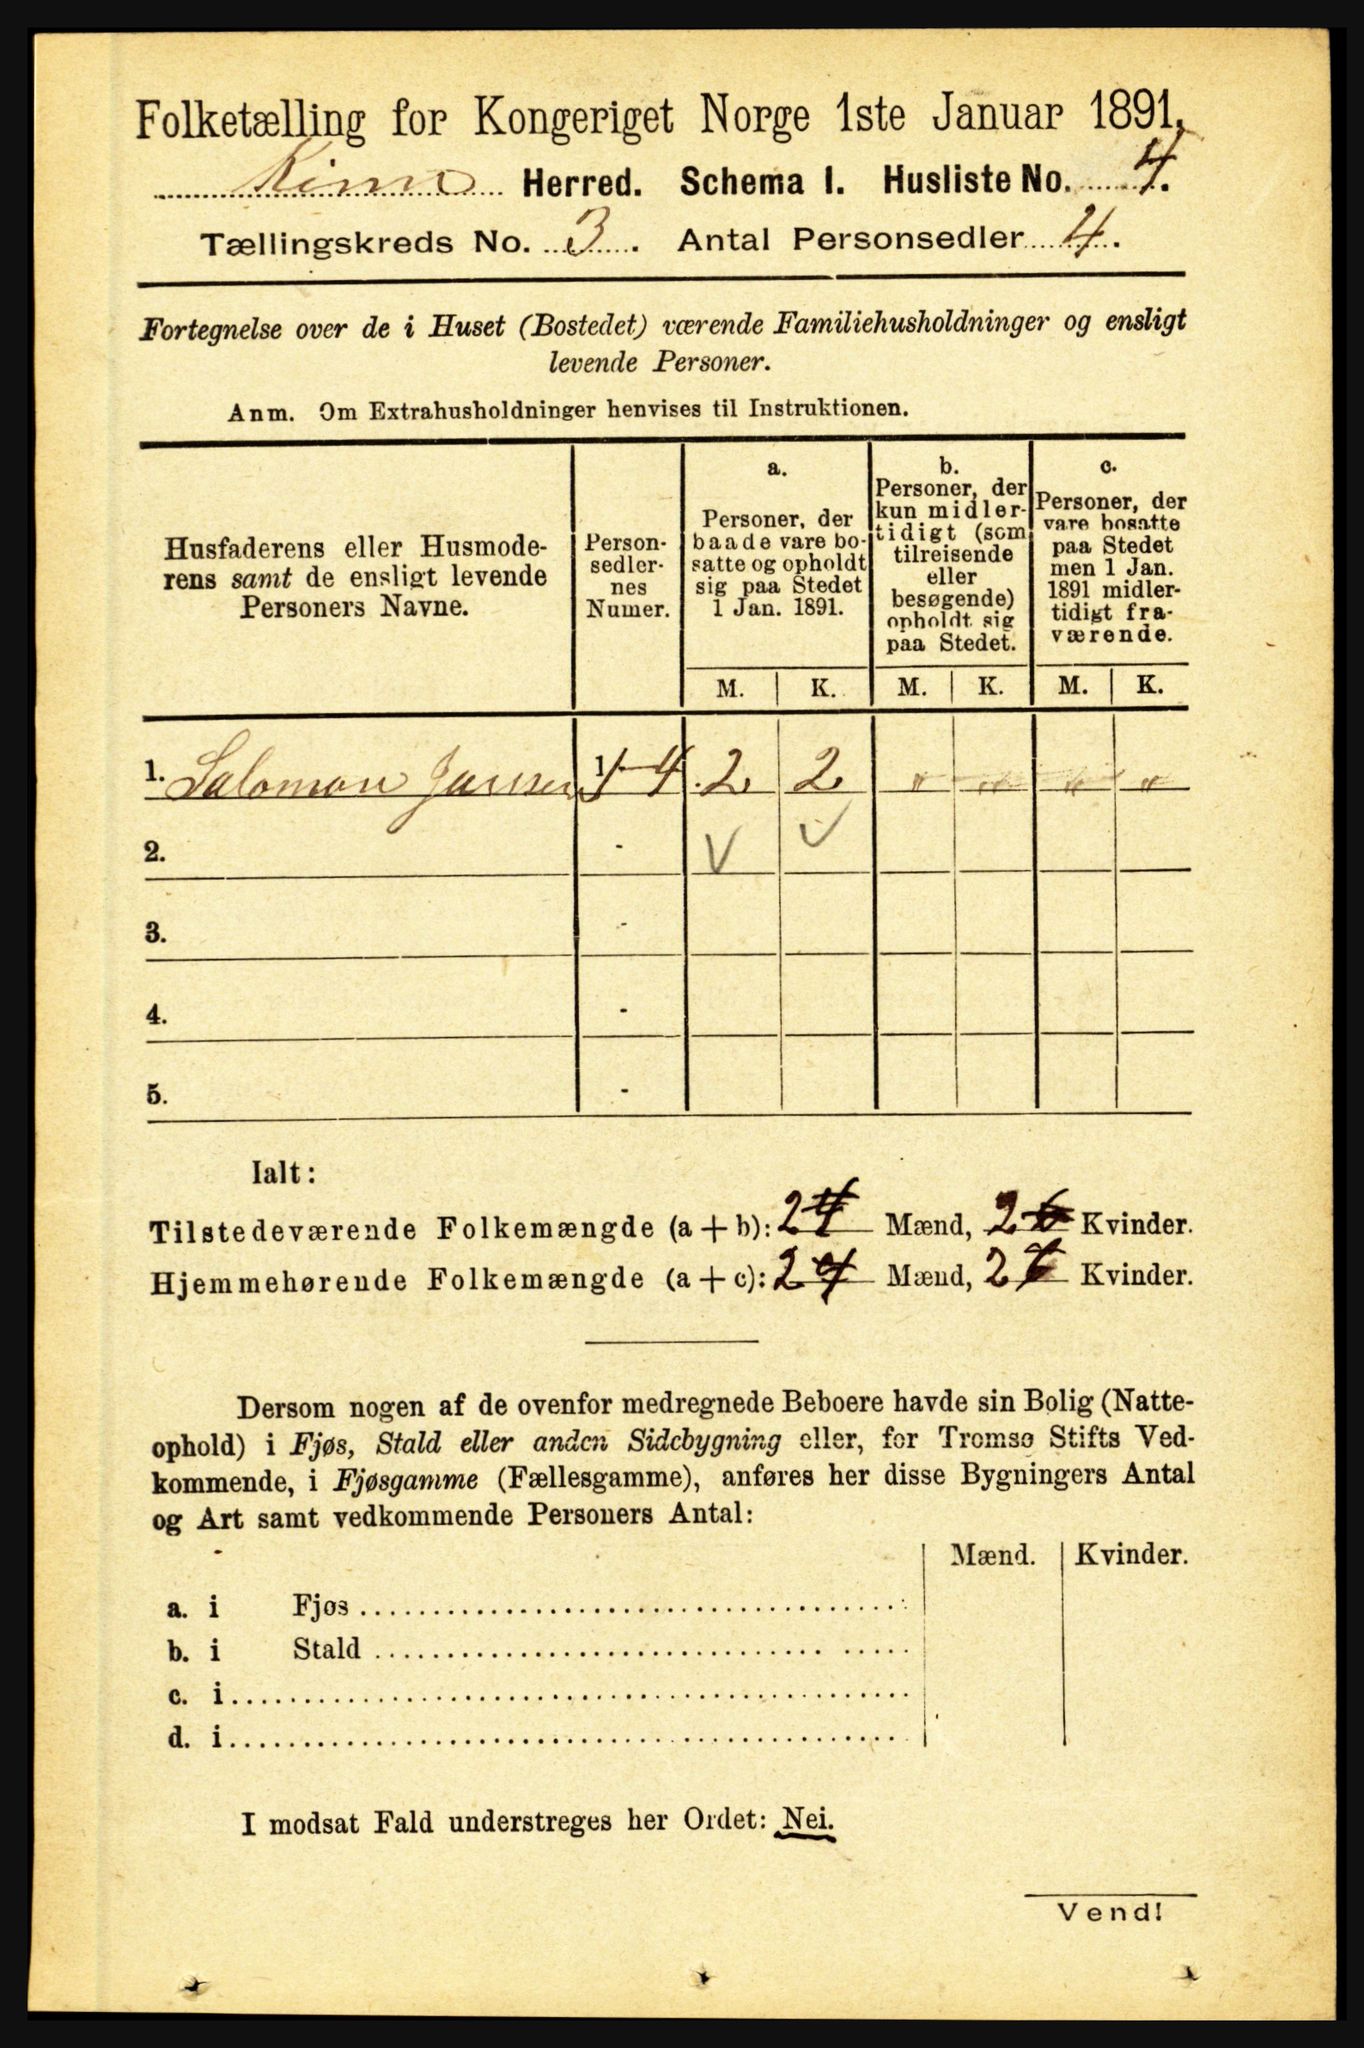 Folketælling for Kongeriget Norge 1ste Januar 1891.
Kinn Herred. Schema I. Husliste No. 4.
Tællingskreds No. 3. Antal Personsedler 4.
Fortegnelse over de i Huset (Bostedet) værende Familiehusholdninger og ensligt
levende Personer.
Anm. Om Extrahusholdninger henvises til Instruktionen.
Husfaderens eller Husmode-
rens samt de ensligt levende
Personers Navne.
Person-
sedler-
nes
Numer.
a.
Personer, der
baade vare bo-
satte og opholdt
sig paa Stedet
1 Jan. 1891.
b.
Personer, der
kun midler-
tidigt (som
tilreisende
eller
besøgende)
opholdt sig
paa Stedet.
c.
Personer, der
vare bosatte
paa Stedet
men 1 Jan.
1891 midler-
tidigt fra-
værende.
M. K. M. K. M. K.
1. Salomon Jansen 1-4 2 2 " " " "
2. - V V
3. -
4. -
5. -
Ialt:
Tilstedeværende Folkemængde (a + b): 2 Mænd, 2 Kvinder.
Hjemmehørende Folkemængde (a + c): 2 Mænd, 2 Kvinder.
Dersom nogen af de ovenfor medregnede Beboere havde sin Bolig (Natte-
ophold) i Fjøs, Stald eller anden Sidebygning eller, for Tromsø Stifts Ved-
kommende, i Fjøsgamme (Fællesgamme), anføres her disse Bygningers Antal
og Art samt vedkommende Personers Antal:
Mænd. Kvinder.
a. i Fjøs
b. i Stald
c. i
d. i
I modsat Fald understreges her Ordet: Nei.
Vend!